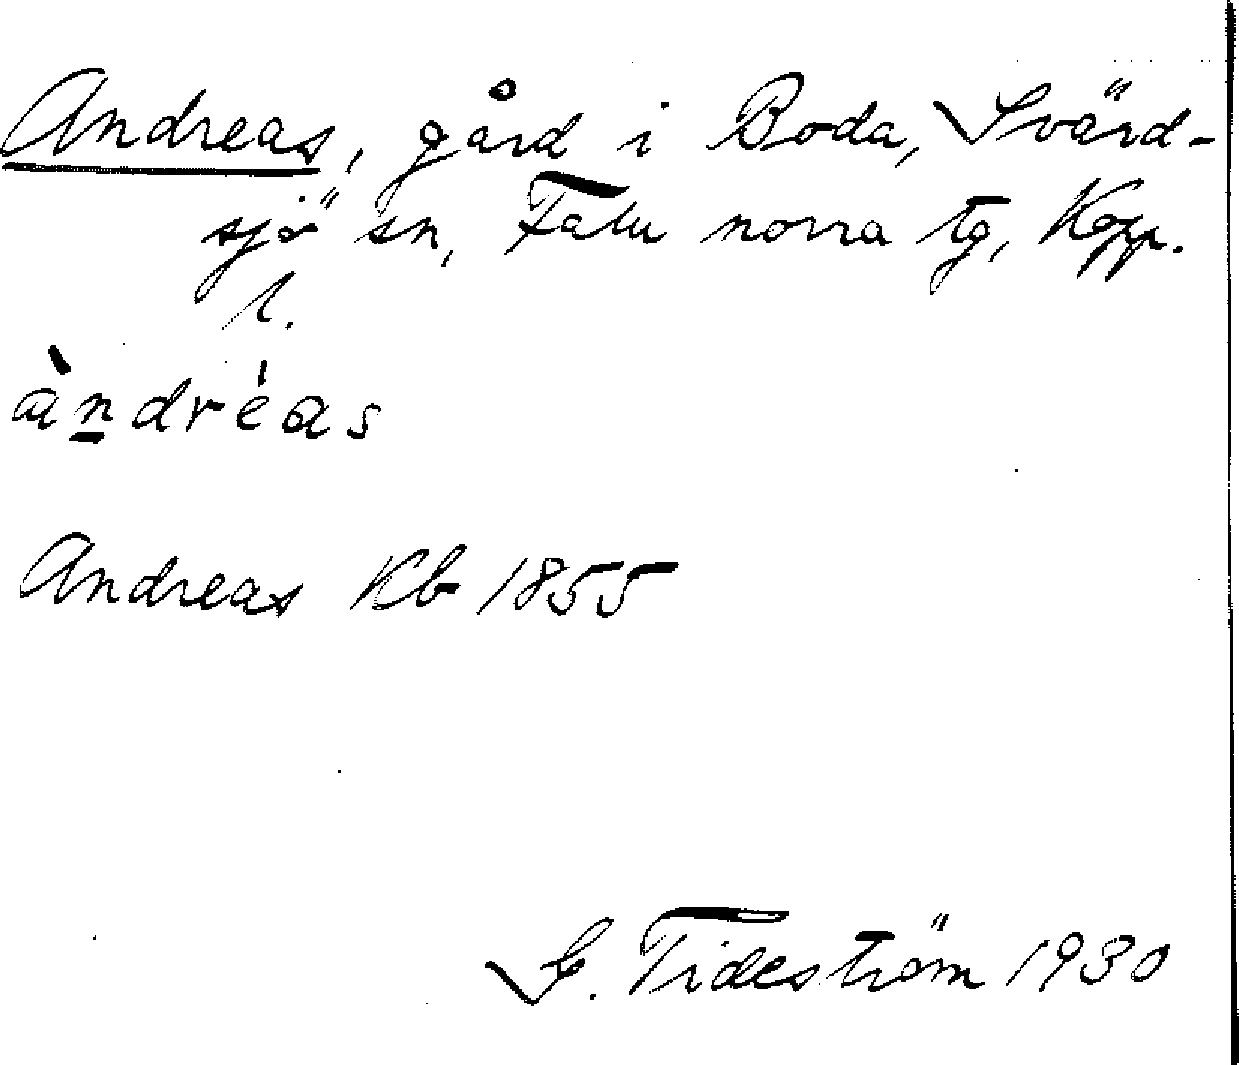 Andreas, gård i Boda, Svärd-
sjö sn, Falu norra tg, Kopp.
l.
àn̲dréas
Andreas Kb 1855
G. Tideström 1930